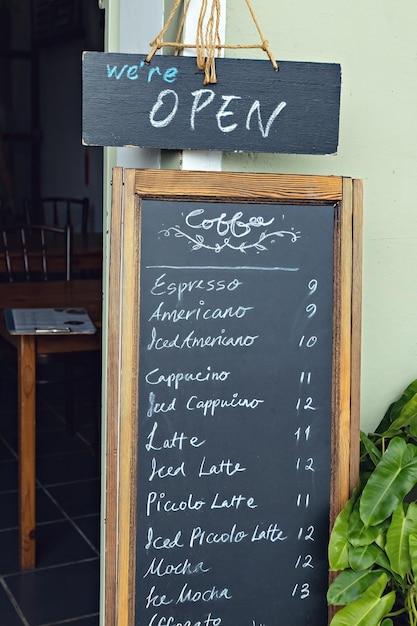 we're
OPEN
Coffee
Espresso 9
Americano 9
Iced Americano 10
Cappucino 11
Iced Cappucino 12
Latte 11
Iced Latte 12
Piccolo Latte 11
Iced Piccolo Latte 12
Mocha 12
Ice Mocha 13